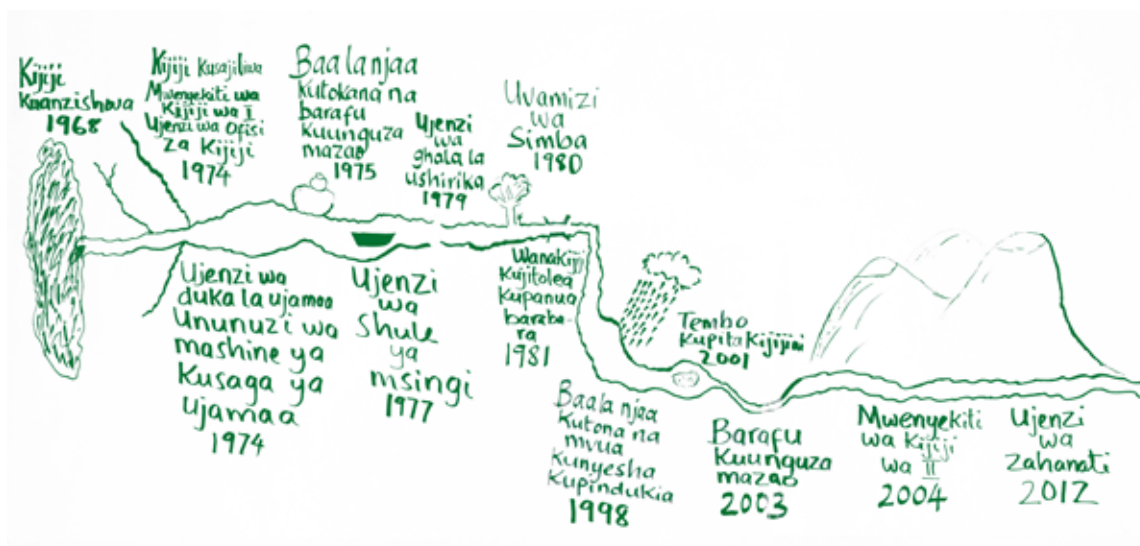 Kijiji
Kuanzishwa
1968
Kijiji Kusajiliwa
Mwenyekiti wa
Kijiji wa I
Ujenzi wa Ofisi
za Kijiji
1974
Baa la njaa
kutokana na
barafu
kuunguza
mazao
1975
Ujenzi
wa
ghala la
ushirika
1979
Uvamizi
wa
Simba
1980
Ujenzi wa
duka la ujamaa
Ununuzi wa
mashine ya
Kusaga ya
Ujamaa
1974
Ujenzi
wa
Shule
ya
msingi
1977
Wanakijiji
Kujitolea
Kupanua
baraba-
ra
1981
Baa la njaa
Kutona na
mvua
Kunyesha
Kupindukia
1998
Tembo
Kupita Kijijini
2001
Barafu
Kuunguza
mazao
2003
Mwenyekiti
wa Kijiji
wa II
2004
Ujenzi
wa
Zahanati
2012